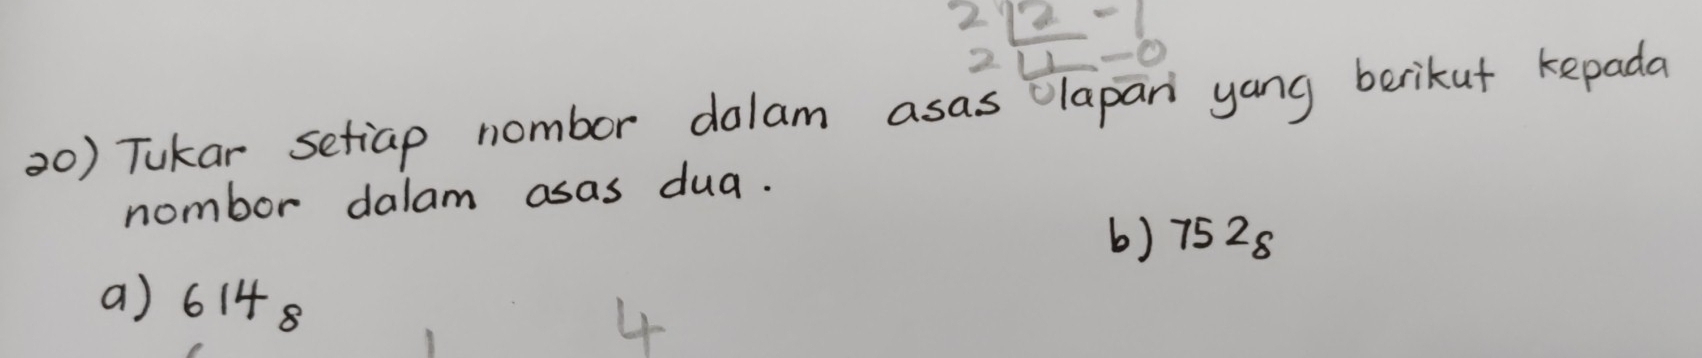 2 2 - 1
2 1 - 0
0
20) Tukar setiap nombor dalam asas lapan yang berikut kepada
nombor dalam asas dua.
b) 752₈
a) 614₈
1 4